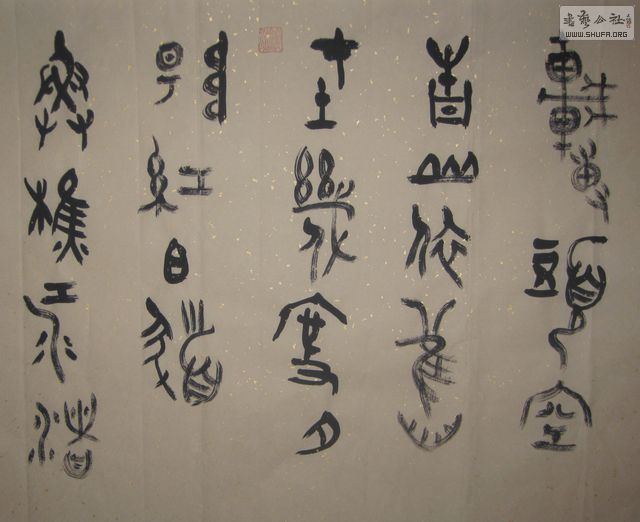 轉頭空
青山依舊
在幾度夕
陽紅白髮
漁樵江渚
書藝公社
WWW.SHUFA.ORG